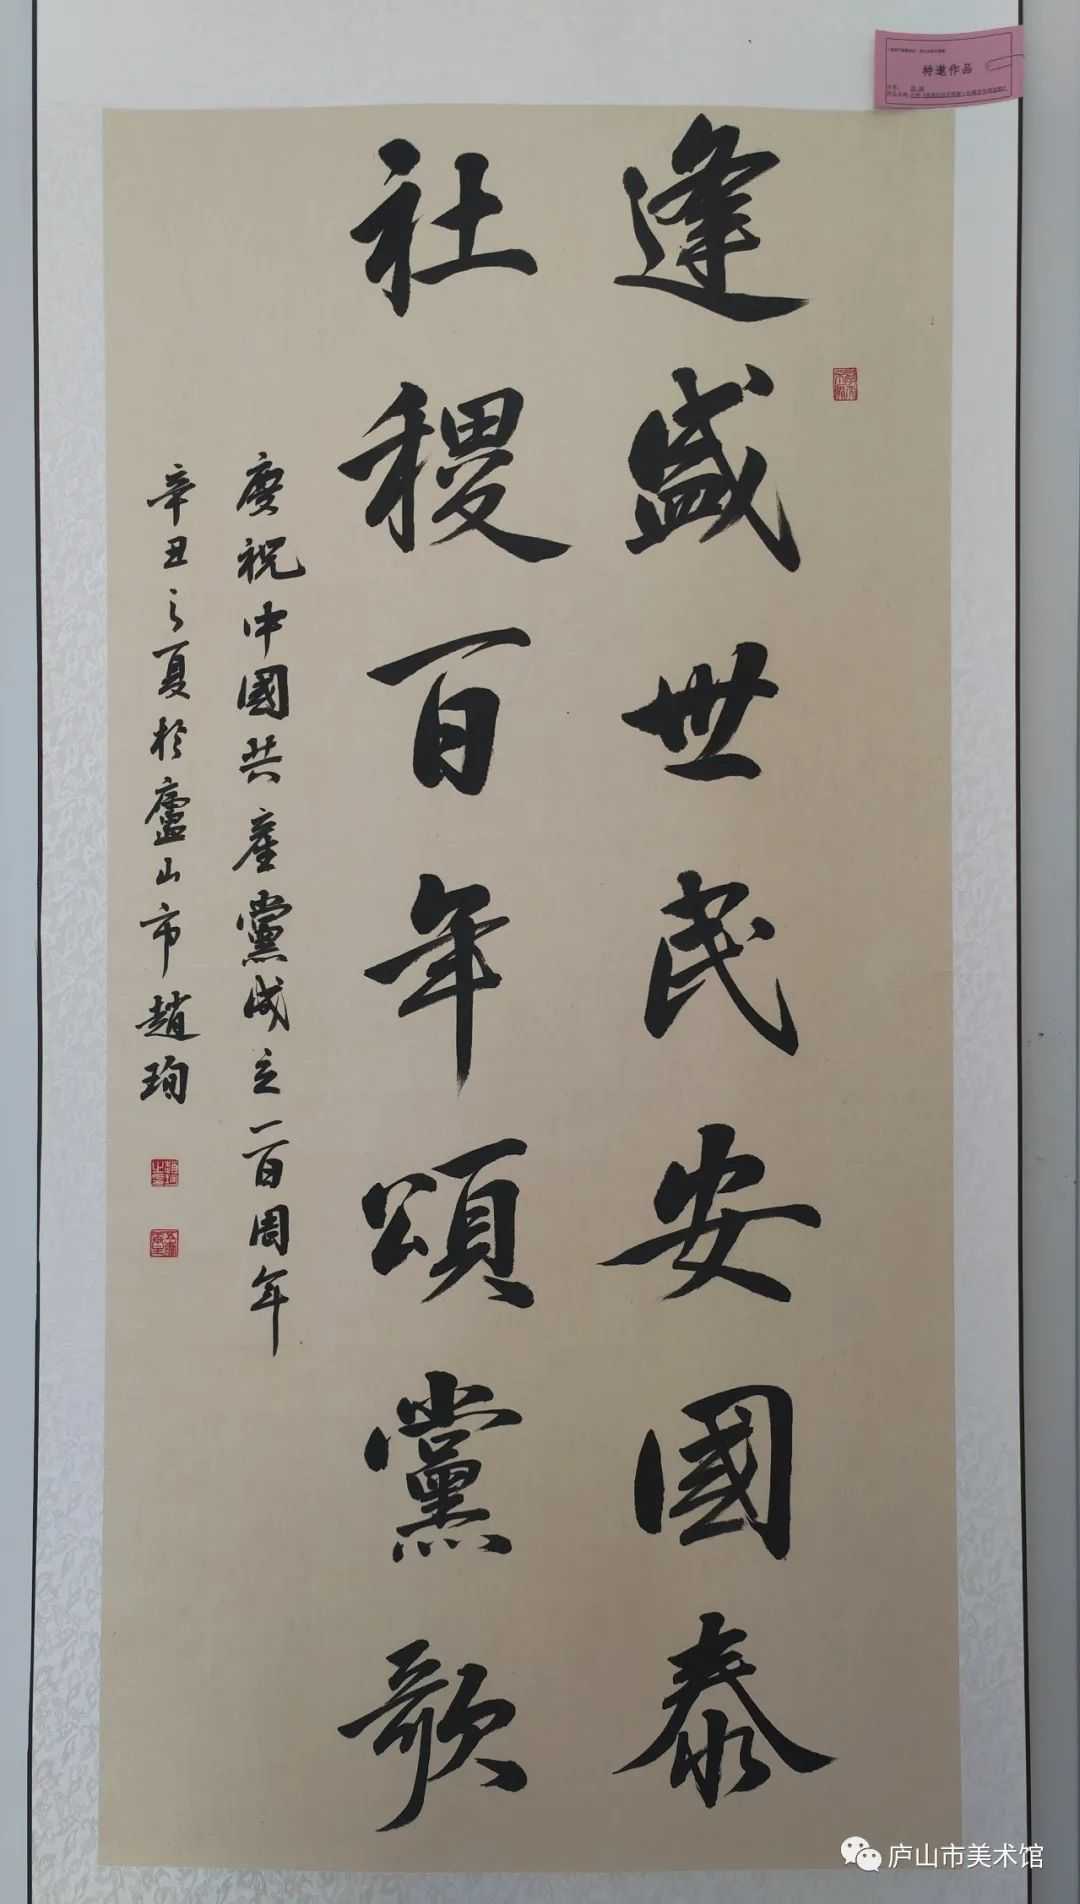 特邀作品
逢盛世民安國泰
社稷百年頌黨歌
慶祝中國共產黨成立一百周年
辛丑之夏於廬山市趙珣
庐山市美术馆